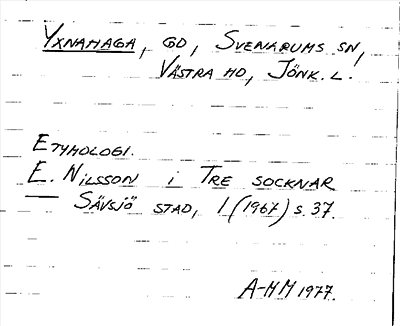 YXNAHAGA, GD, SVENARUMS SN,
VÄSTRA HD, JÖNK. L.
ETYMOLOGI.
E. NILSSON i TRE SOCKNAR
— SÄVSJÖ STAD, 1 (1967) s. 37.
A-MM 1977.